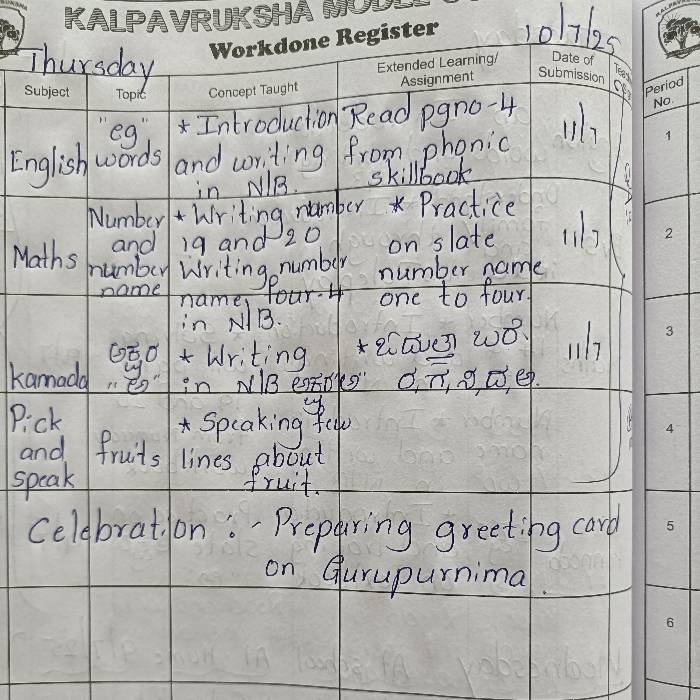 KALPAVRUKSHA MODEL
Workdone Register
10/7/25
Thursday
Subject
Topic
Concept Taught
Extended Learning/
Assignment
Date of
Submission
Period
No.
English
"eg"
words
* Introduction
and writing
in N/B.
Read pgno-4
from phonic
skillbook
11/7
1
Maths
Number
and
number
name
* Writing number
19 and 20
Writing number
name four-4
in N/B.
* Practice
on slate
number name
one to four.
11/7
2
Kannada
ಅಕ್ಷರ
* Writing
in N/B
11/7
3
Pick
and
speak
fruits
* Speaking few
lines about
fruit.
4
Celebration :- Preparing greeting card
on Gurupurnima.
5
6